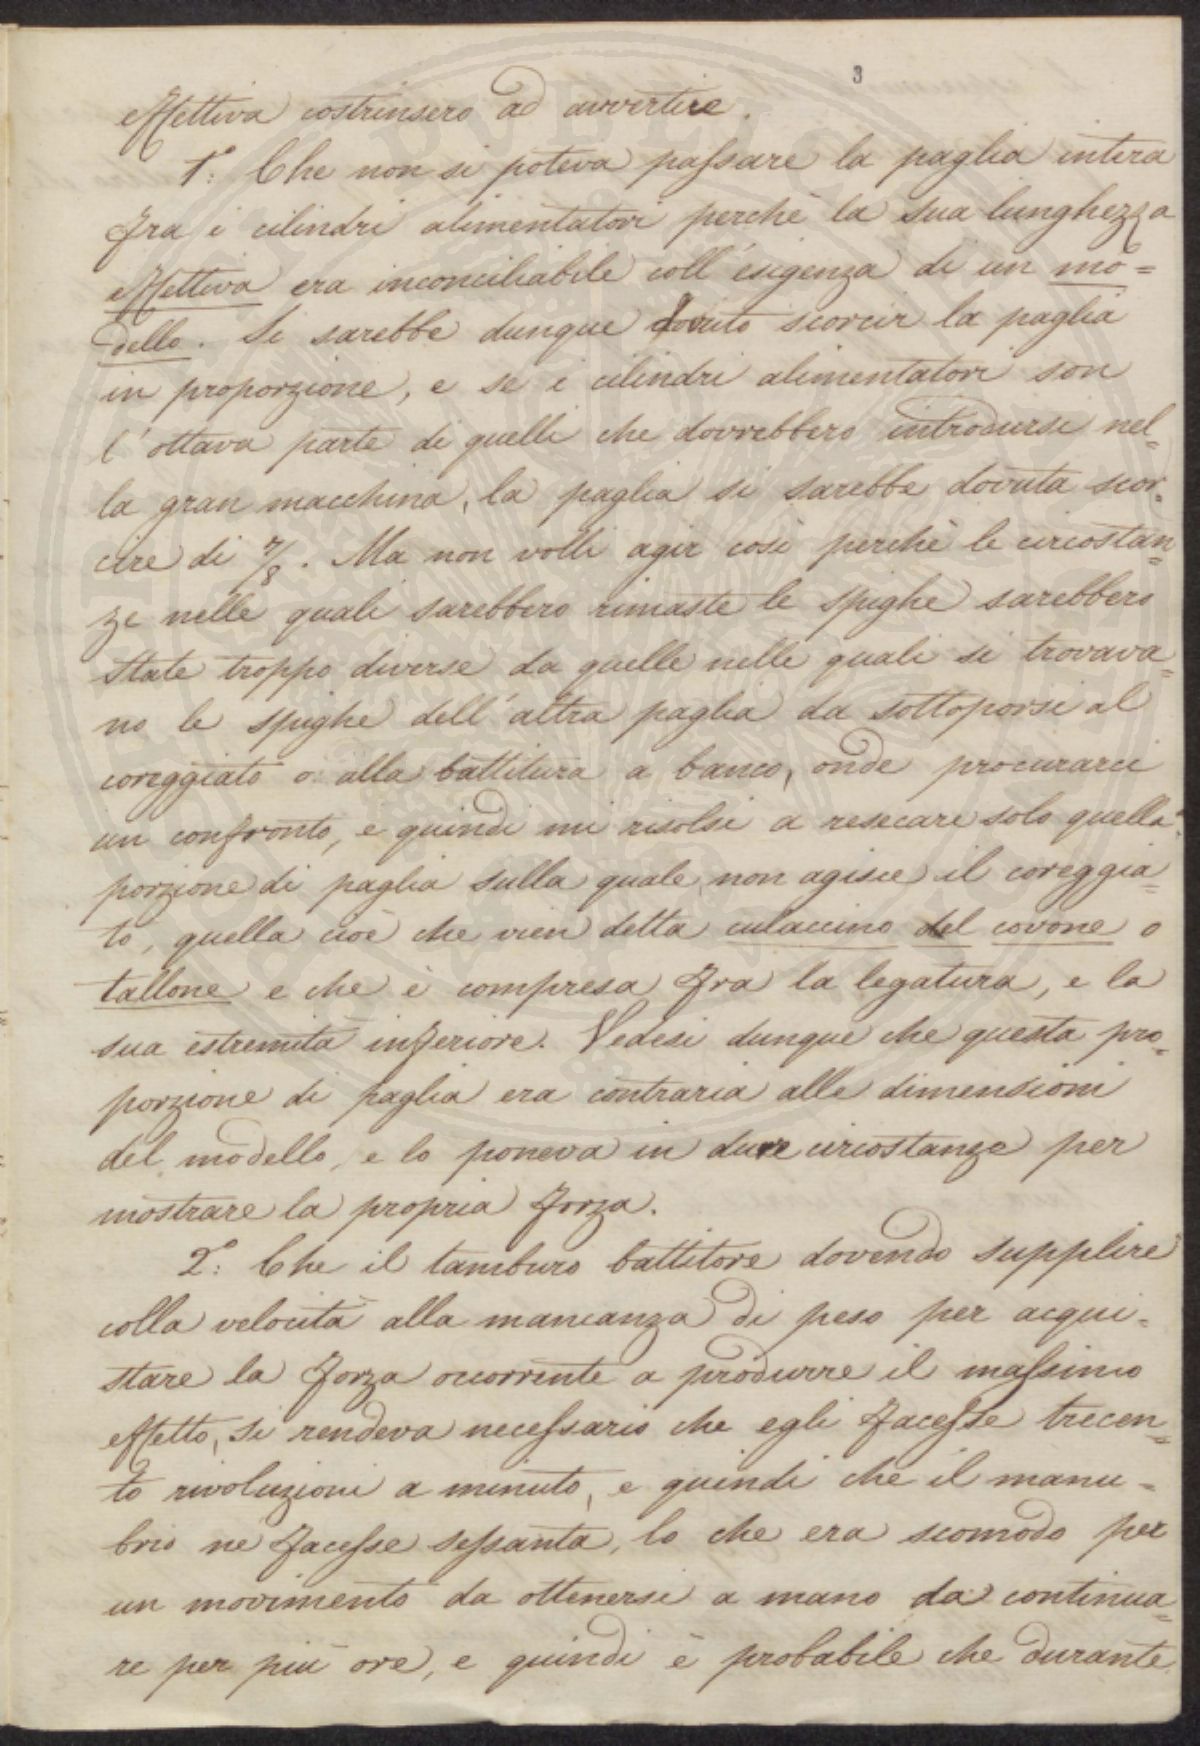 3
effettiva costrinsero ad avvertire.
1°: Che non si poteva passare la paglia intera
fra i cilindri alimentatori perchè la sua lunghezza
effettiva era inconciliabile coll'esigenza di un mo=
dello. Si sarebbe dunque dovuto scorcir la paglia
in proporzione, e se i cilindri alimentatori son
l'ottava parte di quelli che dovrebbero introdursi nel=
la gran macchina, la paglia si sarebbe dovuta scor=
cire di 7/8. Ma non volli agir così perchè le circostan=
ze nelle quali sarebbero rimaste le spighe sarebbero
state troppo diverse da quelle nelle quali si trovava=
no le spighe dell'altra paglia da sottoporsi al
coreggiato o alla battitura a banco, onde procurarci
un confronto, e quindi mi risolsi a resecare solo quella
porzione di paglia sulla quale non agisce il coreggia=
to, quella cioè che vien detta culaccino del covone o
tallone e che è compresa fra la legatura, e la
sua estremità inferiore. Vedesi dunque che questa pro=
porzione di paglia era contraria alle dimensioni
del modello, e lo poneva in dure circostanze per
mostrare la propria forza.
2°: Che il tamburo battitore dovendo supplire
colla velocità alla mancanza di peso per acqui=
stare la forza occorrente a produrre il massimo
effetto, si rendeva necessario che egli facesse trecen=
to rivoluzioni a minuto, e quindi che il manu=
brio ne facesse sessanta, lo che era scomodo per
un movimento da ottenersi a mano da continua=
re per più ore, e quindi è probabile che durante